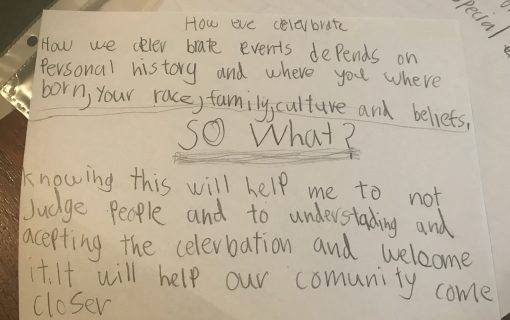 How we celevbrate
How we celev brate events depends on
Personal history and where you where
born, your race, family, culture and beliefs.
SO What?
Knowing this will help me to not
Judge People and to understading and
acepting the celevbation and welcome
it. It will help our comunity come
closer
special